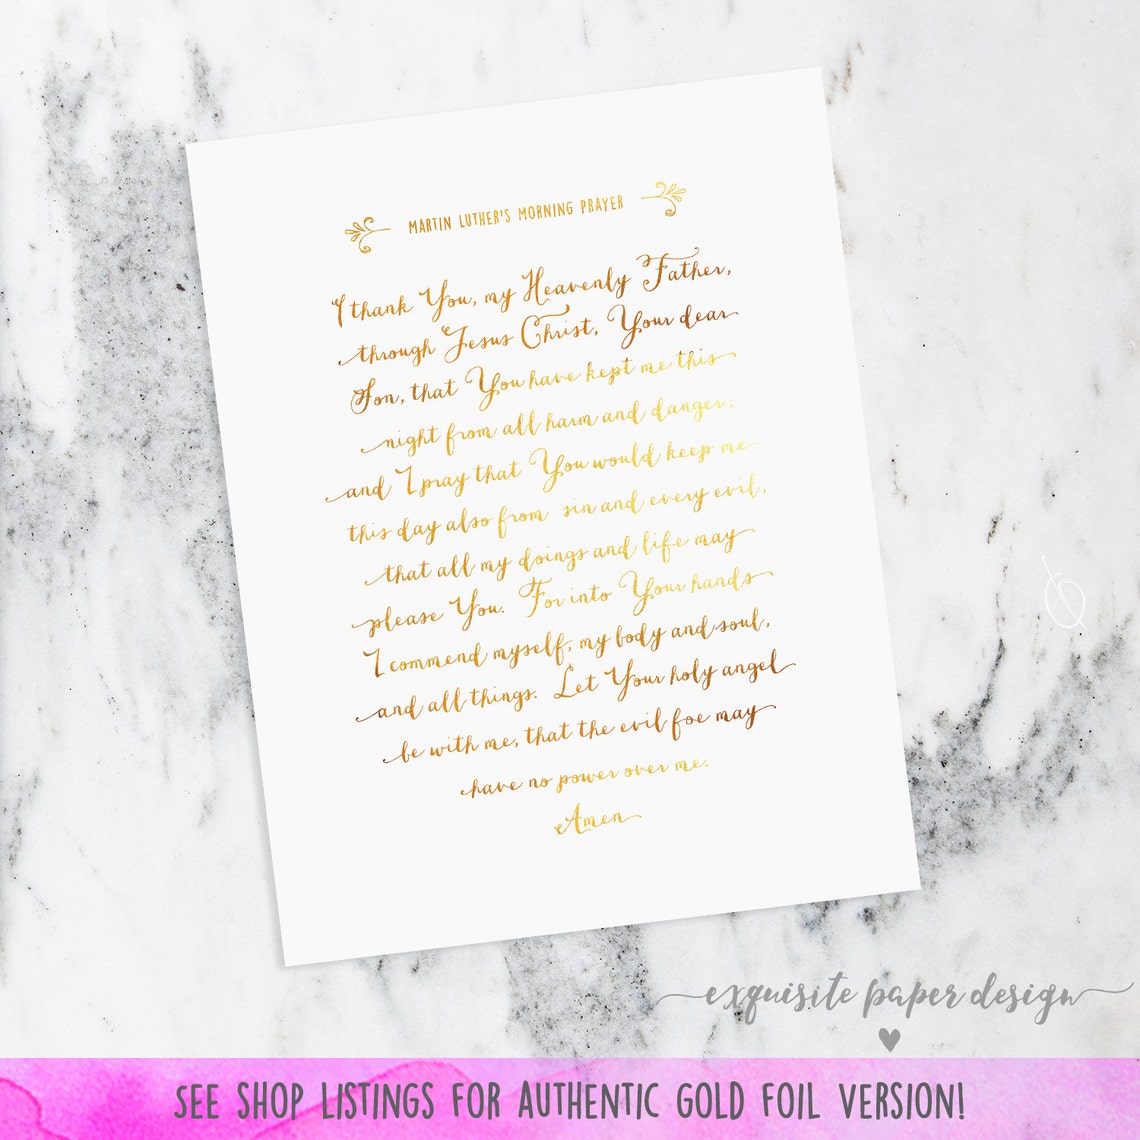 MARTIN LUTHER'S MORNING PRAYER
I thank You, my Heavenly Father,
through Jesus Christ, Your dear
Son, that You have kept me this
night from all harm and danger;
and I pray that You would keep me
this day also from sin and every evil,
that all my doings and life may
please You. For into Your hands
I commend myself, my body and soul,
and all things. Let Your holy angel
be with me, that the evil foe may
have no power over me.
Amen
exquisite paper design
SEE SHOP LISTINGS FOR AUTHENTIC GOLD FOIL VERSION!